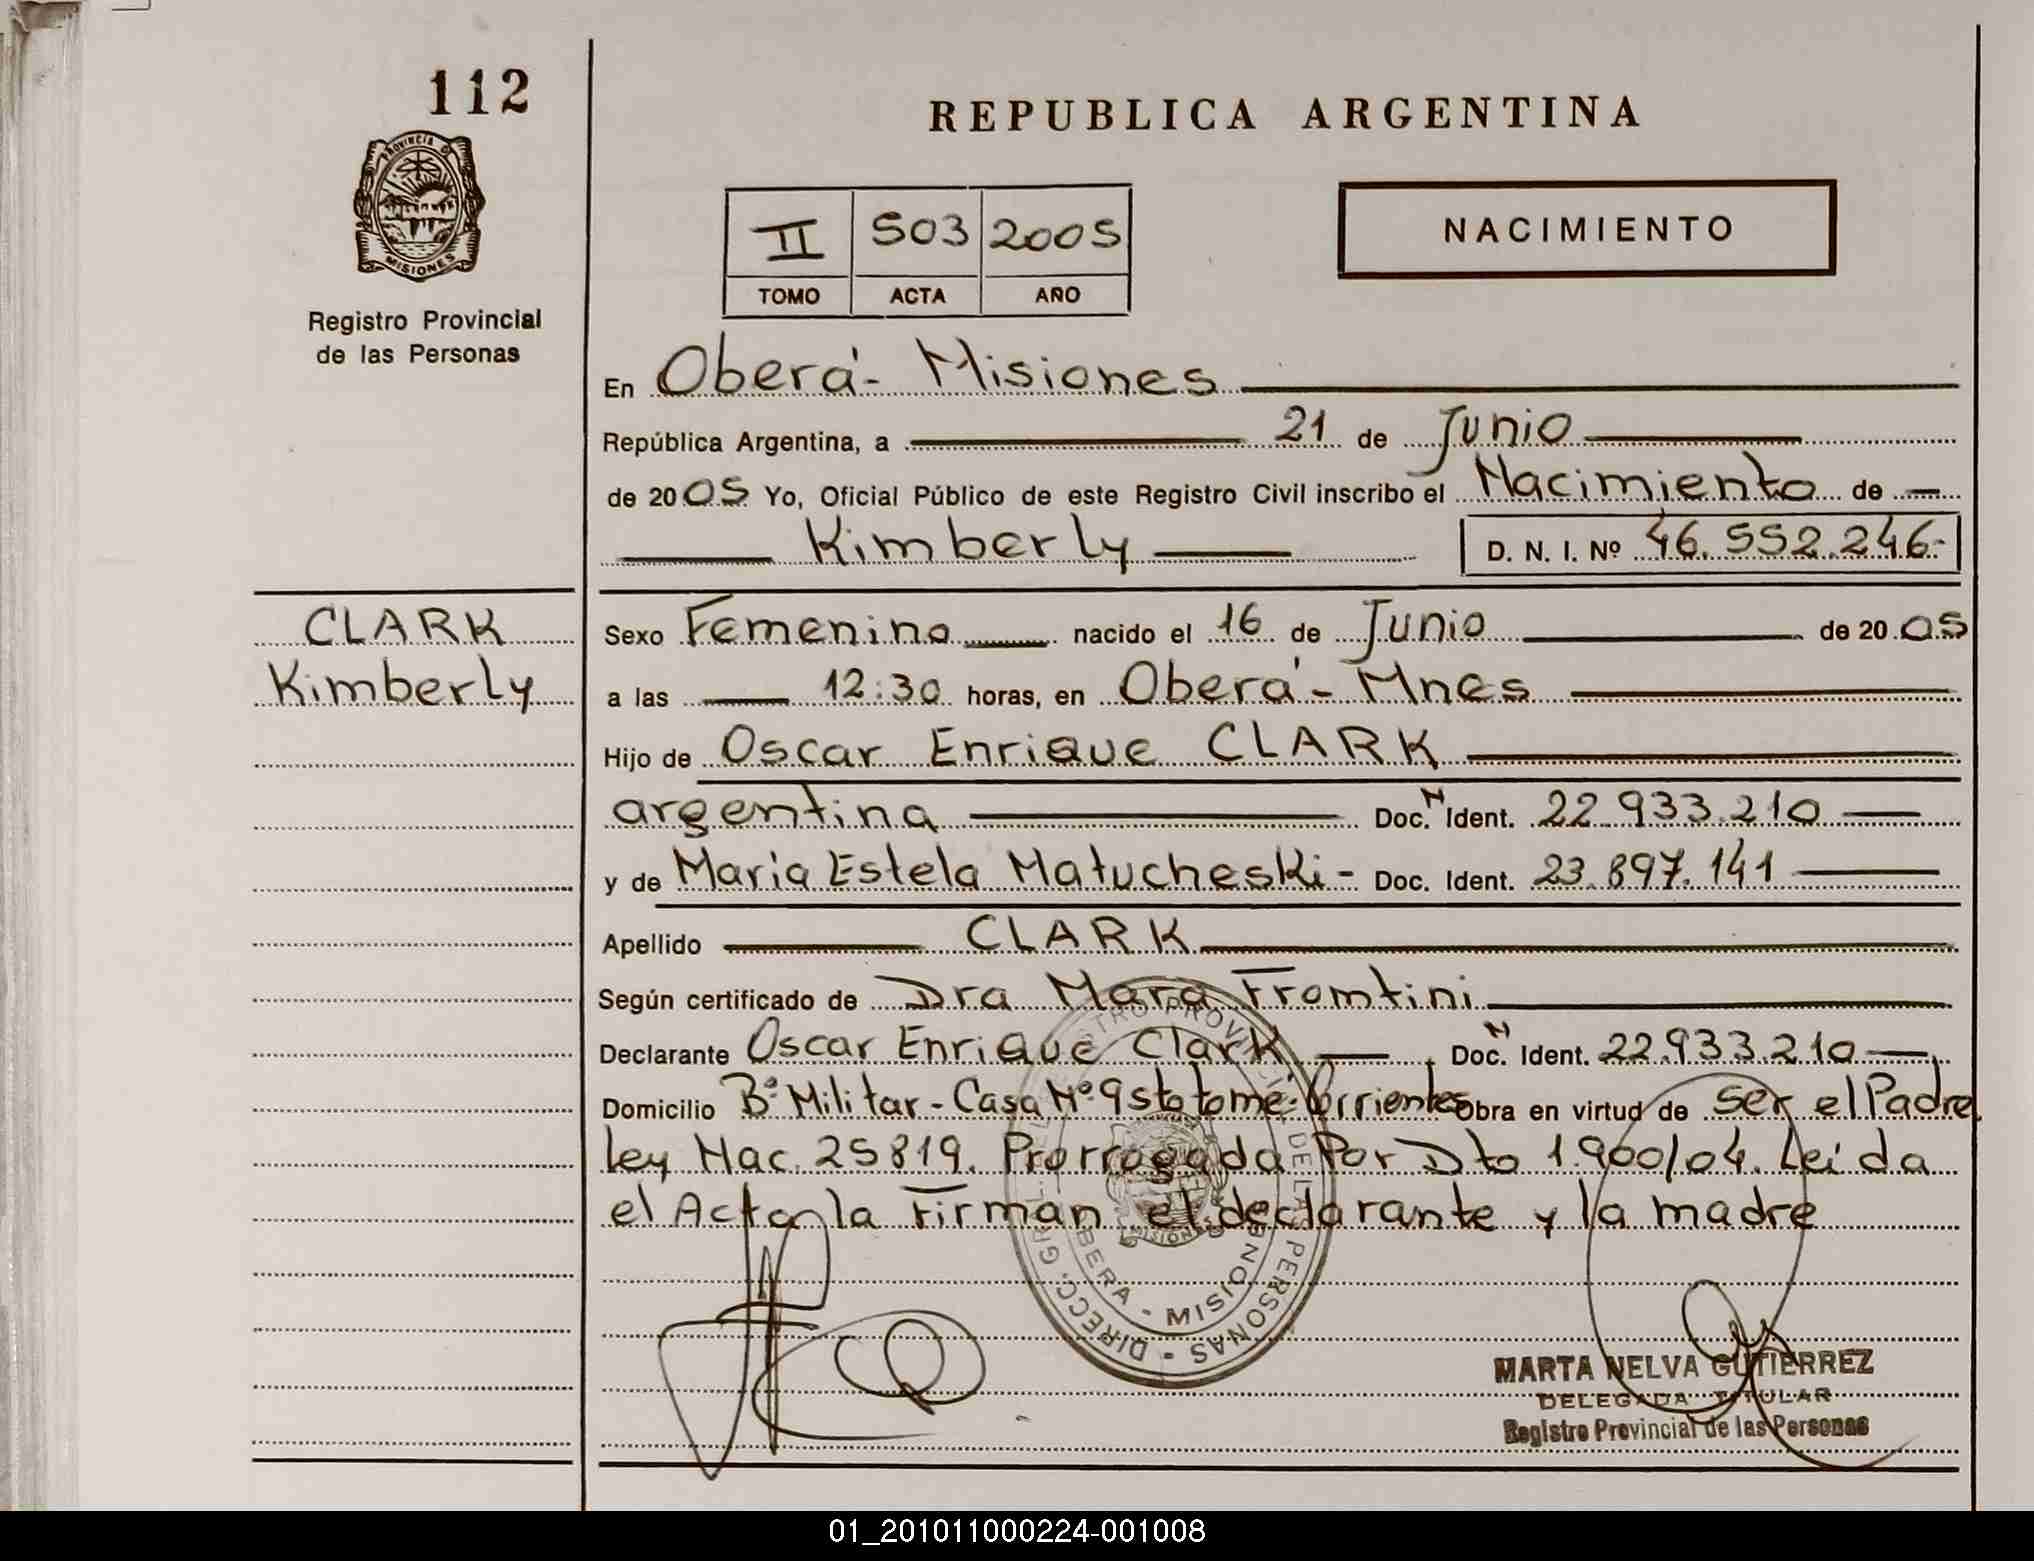 112
PROVINCIA D
MISIONES
Registro Provincial
de las Personas
REPUBLICA ARGENTINA
II 503 2005
TOMO ACTA AÑO
NACIMIENTO
En Oberá - Misiones
República Argentina, a 21 de Junio
de 2005 Yo, Oficial Público de este Registro Civil inscribo el Nacimiento de
Kimberly D. N. I. Nº 46.552.246.-
CLARK
Kimberly
Sexo Femenino nacido el 16 de Junio de 2005
a las 12:30 horas, en Oberá - Mnes
Hijo de Oscar Enrique CLARK
argentina Doc. N Ident. 22.933.210
y de Maria Estela Matucheski - Doc. Ident. 23.897.141
Apellido CLARK
Según certificado de Dra Mara Fromtini
Declarante Oscar Enrique Clark Doc. N Ident. 22.933.210
Domicilio Bº Militar - Casa Nº 9 Sto tomé - Corrientes Obra en virtud de ser el Padre
Ley Nac. 25819. Prorrogada Por Dto 1.900/04. Leída
el Acta la Firman el declarante y la madre
DIRECC. GRAL. REGISTRO PROVINCIAL DE LAS PERSONAS -
OBERA - MISIONES
MISIONES
MARTA NELVA GUTIERREZ
DELEGADA TITULAR
Registro Provincial de las Personas
01_201011000224-001008